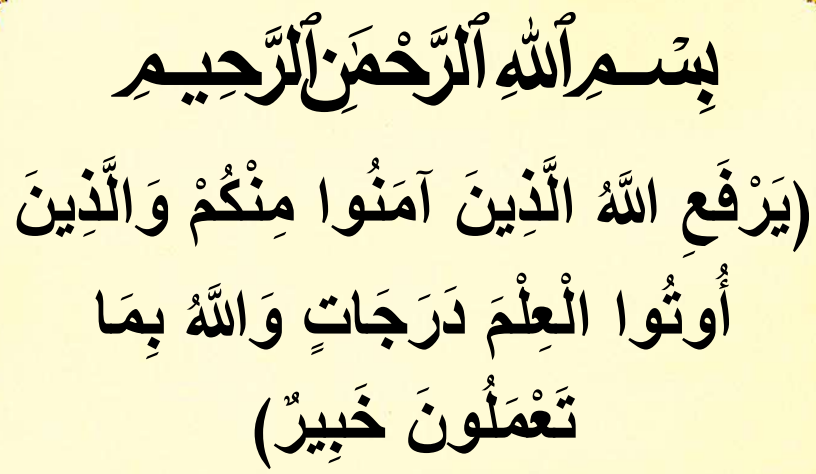 بِسْمِ ٱللَّهِ ٱلرَّحْمَٰنِ ٱلرَّحِيمِ
(يَرْفَعِ اللَّهُ الَّذِينَ آمَنُوا مِنْكُمْ وَالَّذِينَ
أُوتُوا الْعِلْمَ دَرَجَاتٍ وَاللَّهُ بِمَا
تَعْمَلُونَ خَبِيرٌ)